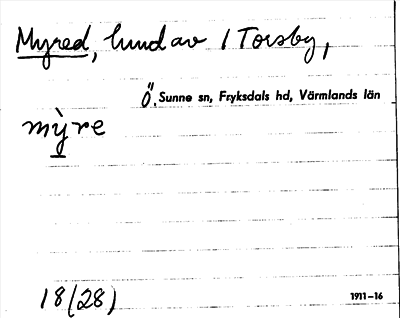 Myred, lund av 1 Torsby,
Ö. Sunne sn, Fryksdals hd, Värmlands län
mỳre
18(28)
1911–16